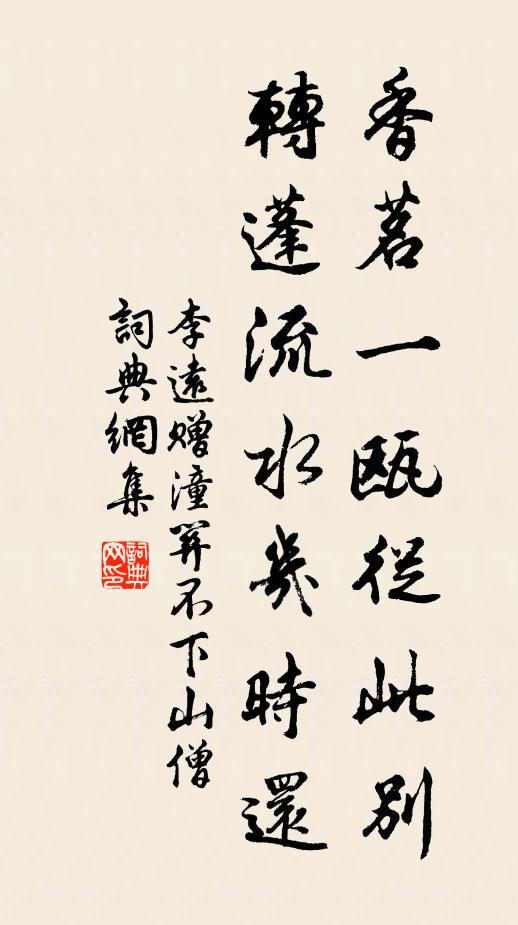 香茗一甌從此別
轉蓬流水幾時還
李遠贈潼關不下山僧
詞典網集
詞典网印